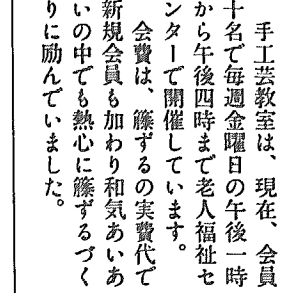 手工芸教室は、現在、会員
十名で毎週金曜日の午後一時
から午後四時まで老人福祉セ
ンターで開催しています。
会費は、籐ずるの実費代で
新規会員も加わり和気あいあ
いの中でも熱心に籐ずるづく
りに励んでいました。